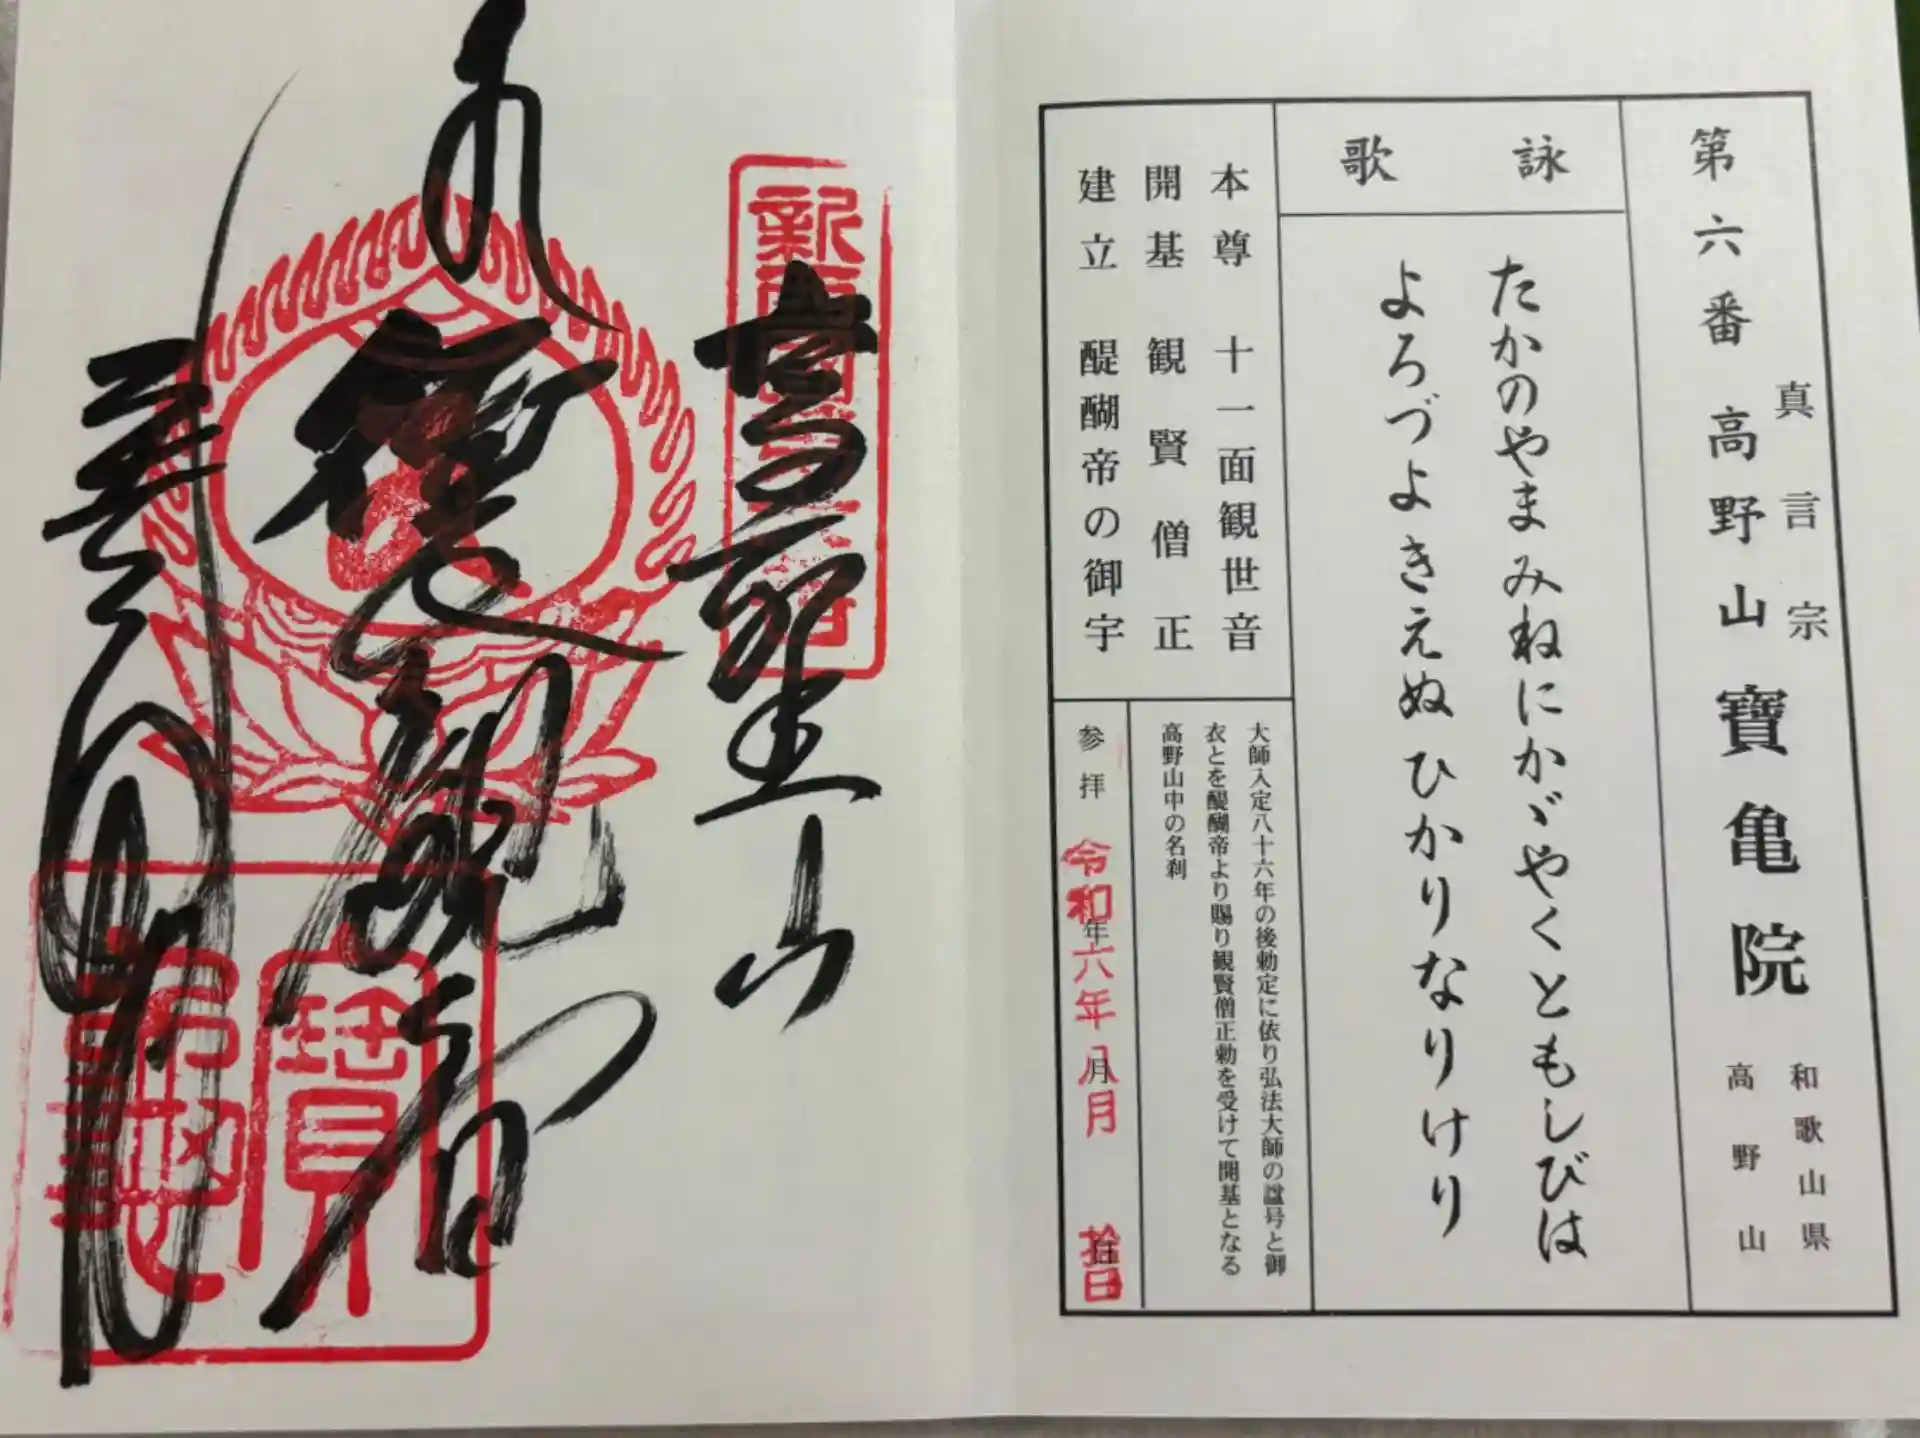 第六番 高野山 寶亀院
真言宗
和歌山県
高野山
詠歌
たかのやまみねにかゞやくともしびは
よろづよきえぬひかりなりけり
本尊 十一面観世音
開基 観賢僧正
建立 醍醐帝の御宇
大師入定八十六年の後勅定に依り弘法大師の諡号と御
衣とを醍醐帝より賜り観賢僧正勅を受けて開基となる
高野山中の名刹
参拝 令和六年八月拾日
年 月 日
高野山